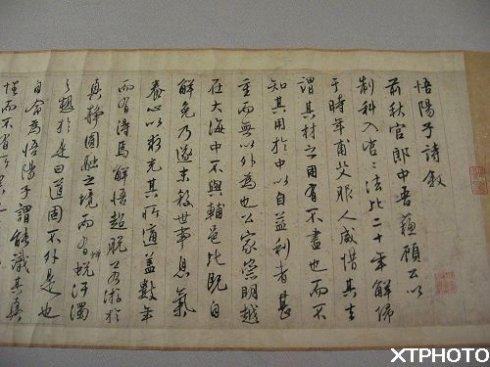 悟陽子詩敘
前秋官郎中吾蘓顧公以
制科入官法比二十年解歸
于時年甫艾服人咸惜其去
謂其材之用有不盡也而不
知其用於中以自益利者甚
重而無以外為也公家崇明越
在大海中不與輔邑比既自
解免乃遂末殺世事息氣
養心以求其所適蓋數年
而有得焉解悟超脫若游於
真静圓融之境而有蛻汙濁
之趣於是曰道固不外是也
自命為悟陽子謂能識其真
性而不
XTPHOTO